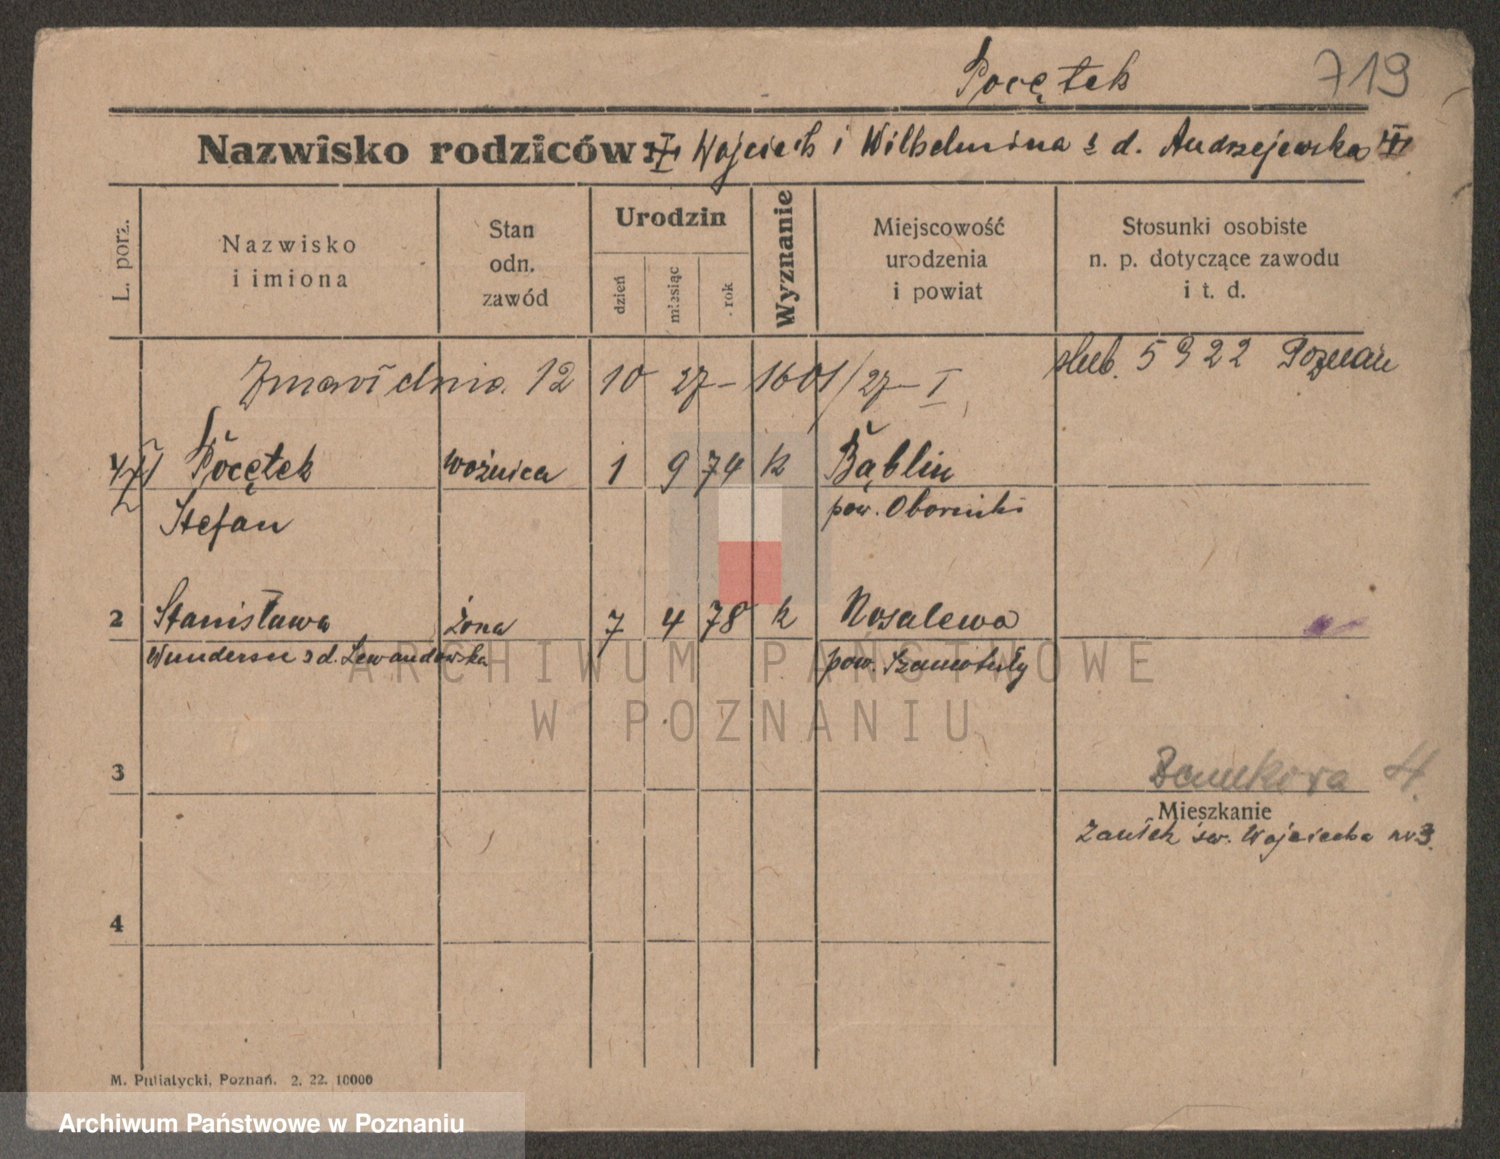 Pocętek 719
Nazwisko rodziców: Wojciech i Wilhelmina z d. Andrzejewska
L. porz.
Nazwisko
i imiona
Stan
odn.
zawód
Urodzin
dzień
miesiąc
rok
Wyznanie
Miejscowość
urodzenia
i powiat
Stosunki osobiste
n. p. dotyczące zawodu
i t. d.
Zmarł dnia 12 10 27 - 1601/27 - I
ślub. 5 9 22 Poznań
1 Pocętek woźnica 1 9 74 k Bąblin
Stefan pow. Oborniki
2 Stanisława żona 7 4 78 k Rosalewo
z d. Lewandowska pow. Szamotuły
3
Mieszkanie
Zaułek św. Wojciecha nr 3.
4
M. Putiatycki, Poznań. 2. 22. 10000
ARCHIWUM PAŃSTWOWE
W POZNANIU
Archiwum Państwowe w Poznaniu